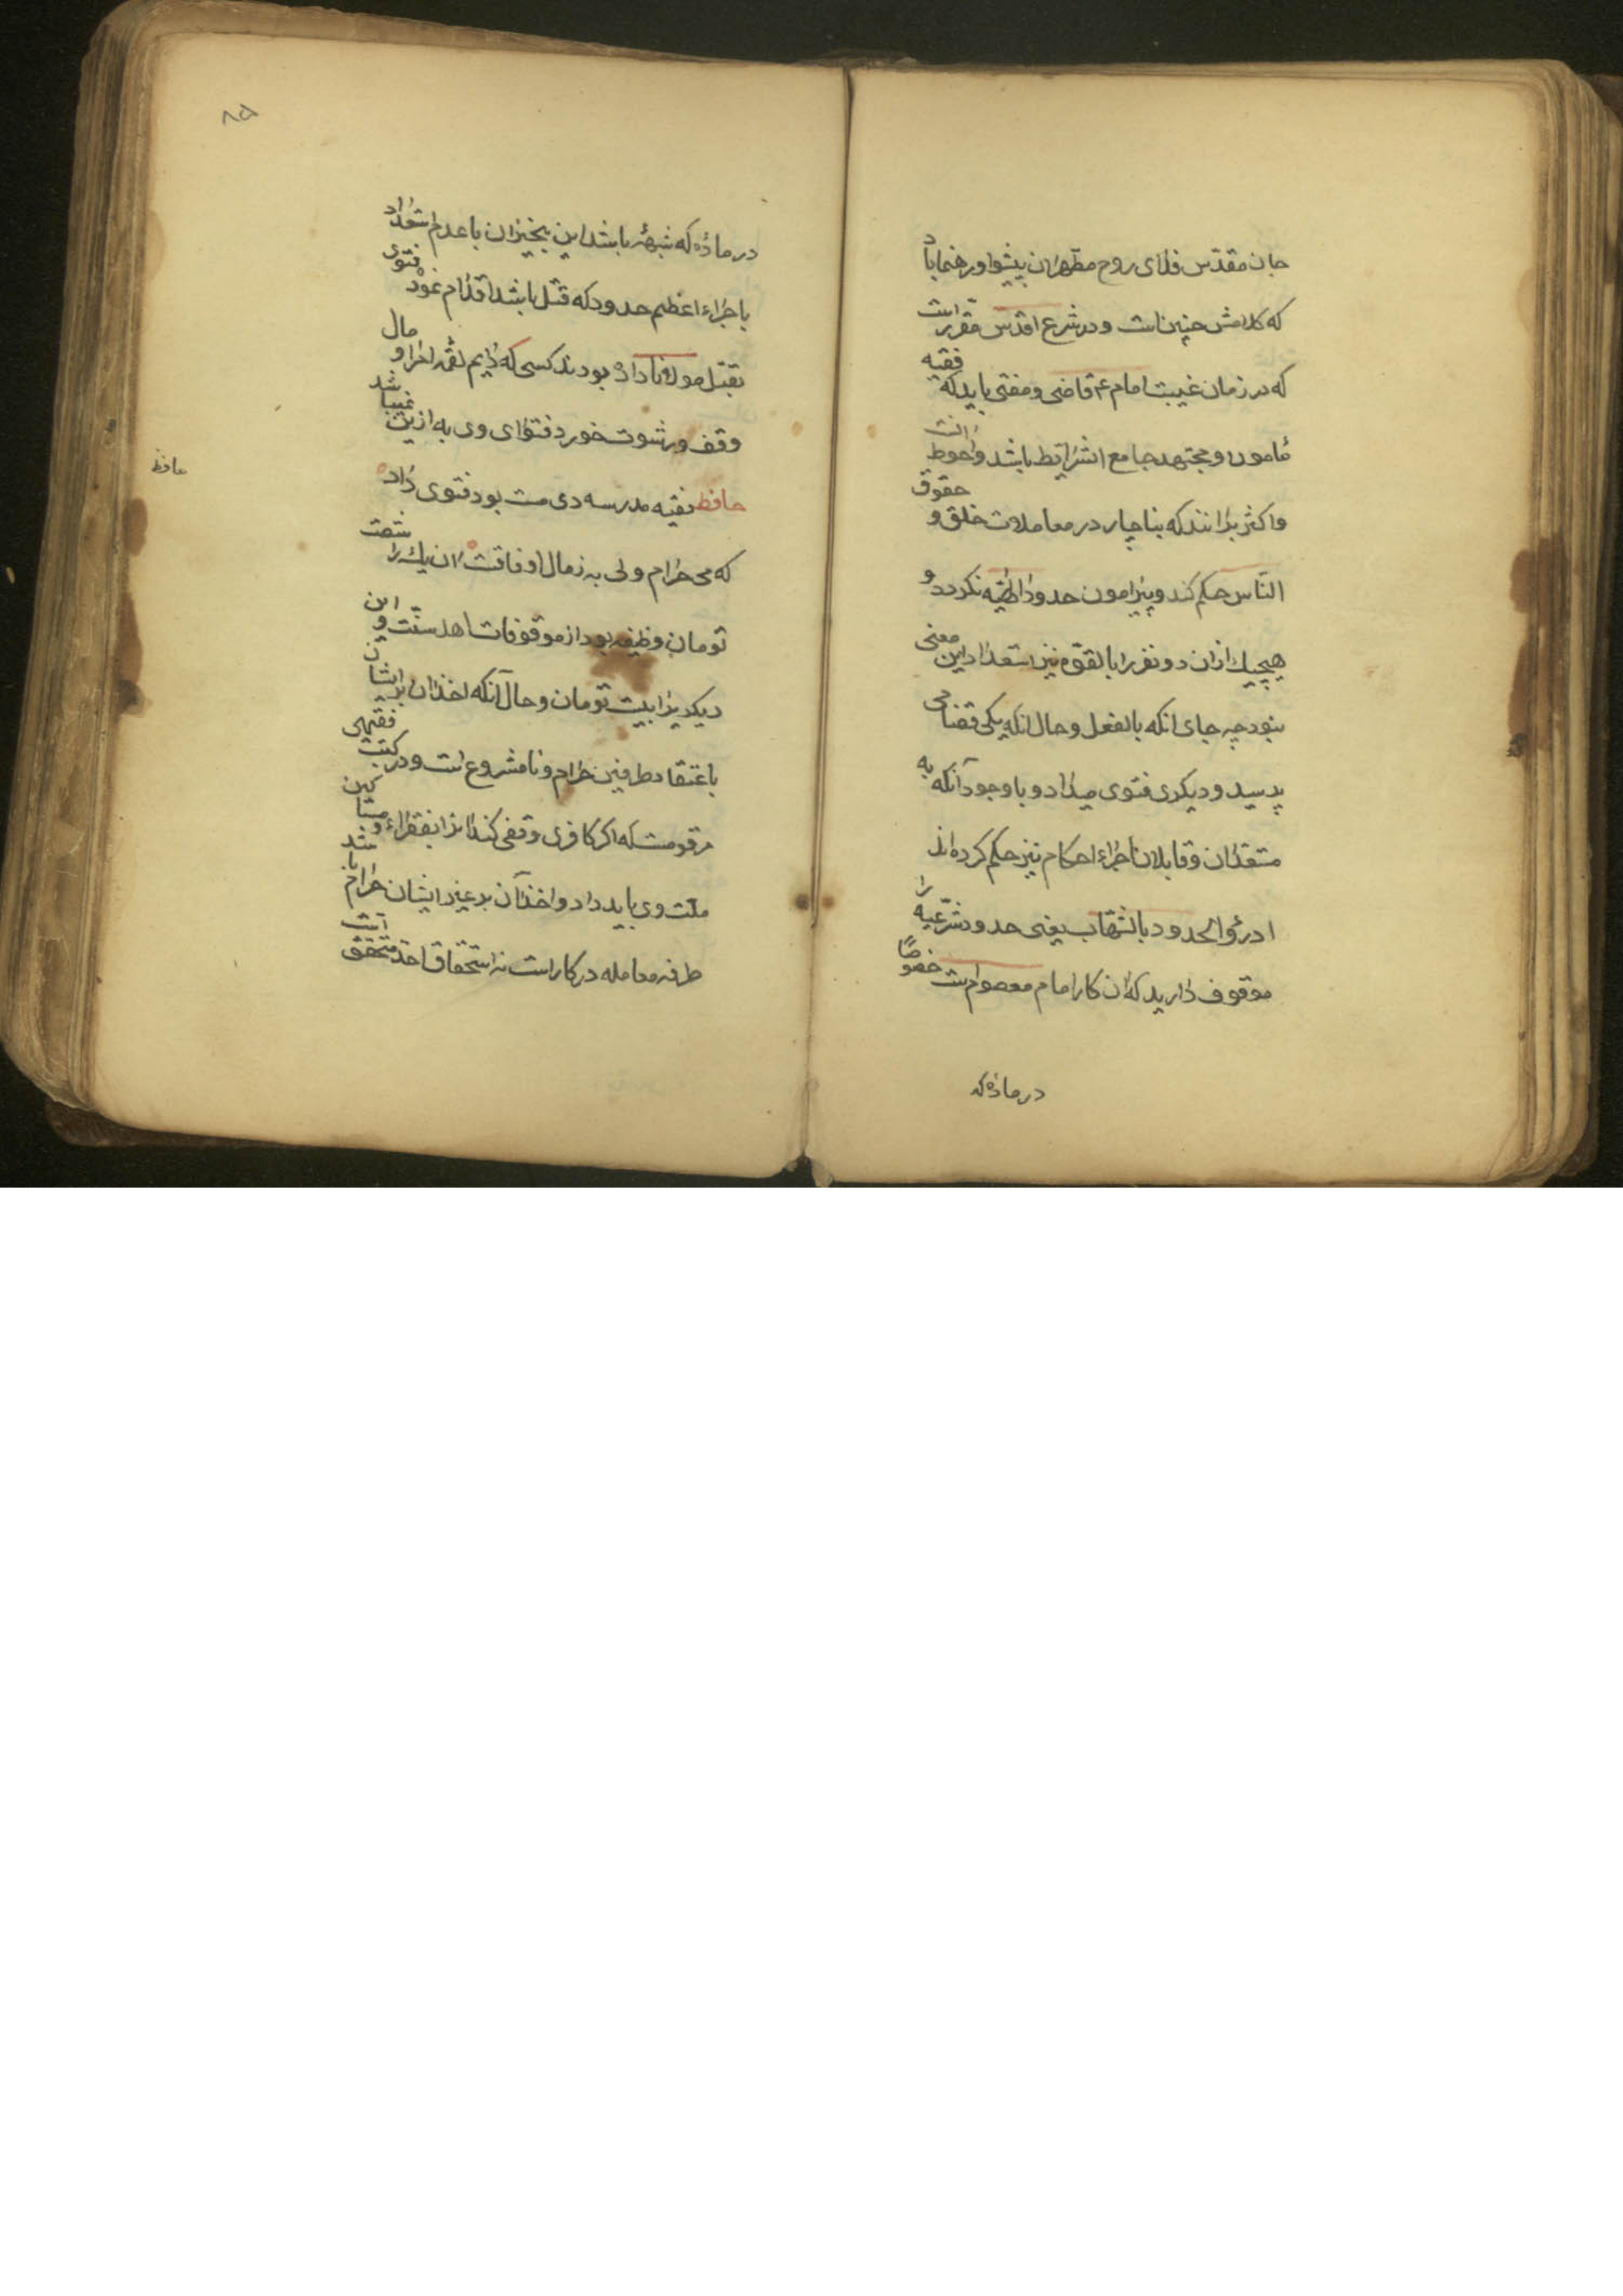 جان مقدّس فدای روح مطهر ان پیشوا و رهنما باد
که کلامش چنین است و در شرع اقدس مقرر است
که در زمان غیبت امام ع قاضی و مفتی باید که فقیه
مامون و مجتهد جامع الشرایط باشد و احوط انست
و اکثر برانند که بناچار در معاملات خلق و حقوق
النّاس حکم کند و پیرامون حدود الهیّه نکردد و
هیچیك ازان دو نفر را بالقوّه نیز استعداد این معنی
نبود چه جای انکه بالفعل و حال انکه یکی قضا می
پرسید و دیکری فتوی میداد و با وجود آنکه به
متقدان و قایلان اجراء احکام نیز حکم کرده اند
ادرؤا الحدود بالشبهات یعنی حدود شرعیّه را
موقوف دارید که ان کار امام معصوم است خصوصًا
در مادّه که
۸۵
در مادّه که شبههٔ باشد این بیخبران با عدم استعداد
باجراء اعظم حدود که قتل باشد اقدام نموده فتوی
بقتل مولانا داده بودند کسی که دایم لقمه اخرا و مال
وقف و رشوت خورد فتوای وی به ازین نمیباشد
حافظ فقیه مدرسه دی مست بود فتوی داد
که می حرام ولی به ز مال اوقافست ان یك را شصت
تومان وظیفه بود از موقوفات اهل سنّت و این
دیکریرا بیست تومان و حال آنکه اخذ ان بر ایشان
باعتقاد طرفین حرام و نامشروع است و در کتب فقهی
مرقومست که اکر کافری وقفی کند انرا بفقراء و مساکین
ملّت وی باید داد و اخذ آن بر غیر ایشان حرام باشد
طرفه معامله در کار است نه استحقاق اخذ متحقق است
حافظ